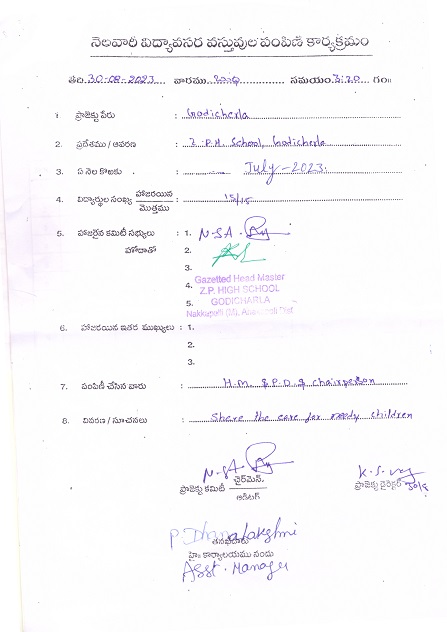 నెలవారి విద్యావసర వస్తువుల పంపిణి కార్యక్రమం
తేది 30-08-2023 వారము బుధ సమయం 3:20 గం॥
1. ప్రాజెక్టు పేరు : Godicherla
2. ప్రదేశము / ఆవరణ : Z.P.H. School, Godicherla
3. ఏ నెల కొఱకు : July-2023.
4. విద్యార్థుల సంఖ్య హాజరయిన / మొత్తము : 15/15
5. హాజరైన కమిటీ సభ్యులు : 1. N.S.A.
హోదాతో 2.
3.
4.
5.
Gazetted Head Master
Z.P. HIGH SCHOOL
GODICHARLA
Nakkapalli (M), Dist
6. హాజరయిన ఇతర ముఖ్యులు : 1.
2.
3.
7. పంపిణీ చేసిన వారు : H.M. & P.D. & chairperson
8. వివరణ / సూచనలు : Share the care for needy children
N.SA
ప్రాజెక్టు కమిటీ చైర్‌మెన్.
ఆడిటర్
K.S.
ప్రాజెక్టు డైరెక్టర్ 30/8
P. Dhanalakshmi
హై కార్యాలయము నందు
Asst. Manager